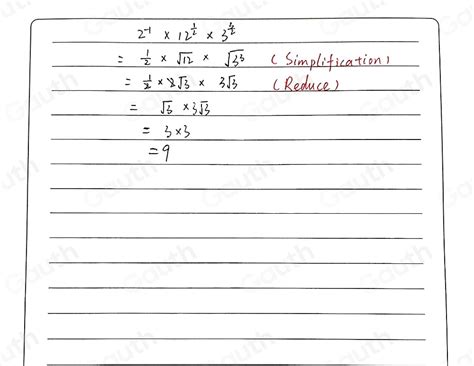 2⁻¹ × 12^(1/2) × 3^(3/2)
= 1/2 × √12 × √3³ (Simplification)
= 1/2 × 2√3 × 3√3 (Reduce)
= √3 × 3√3
= 3×3
= 9